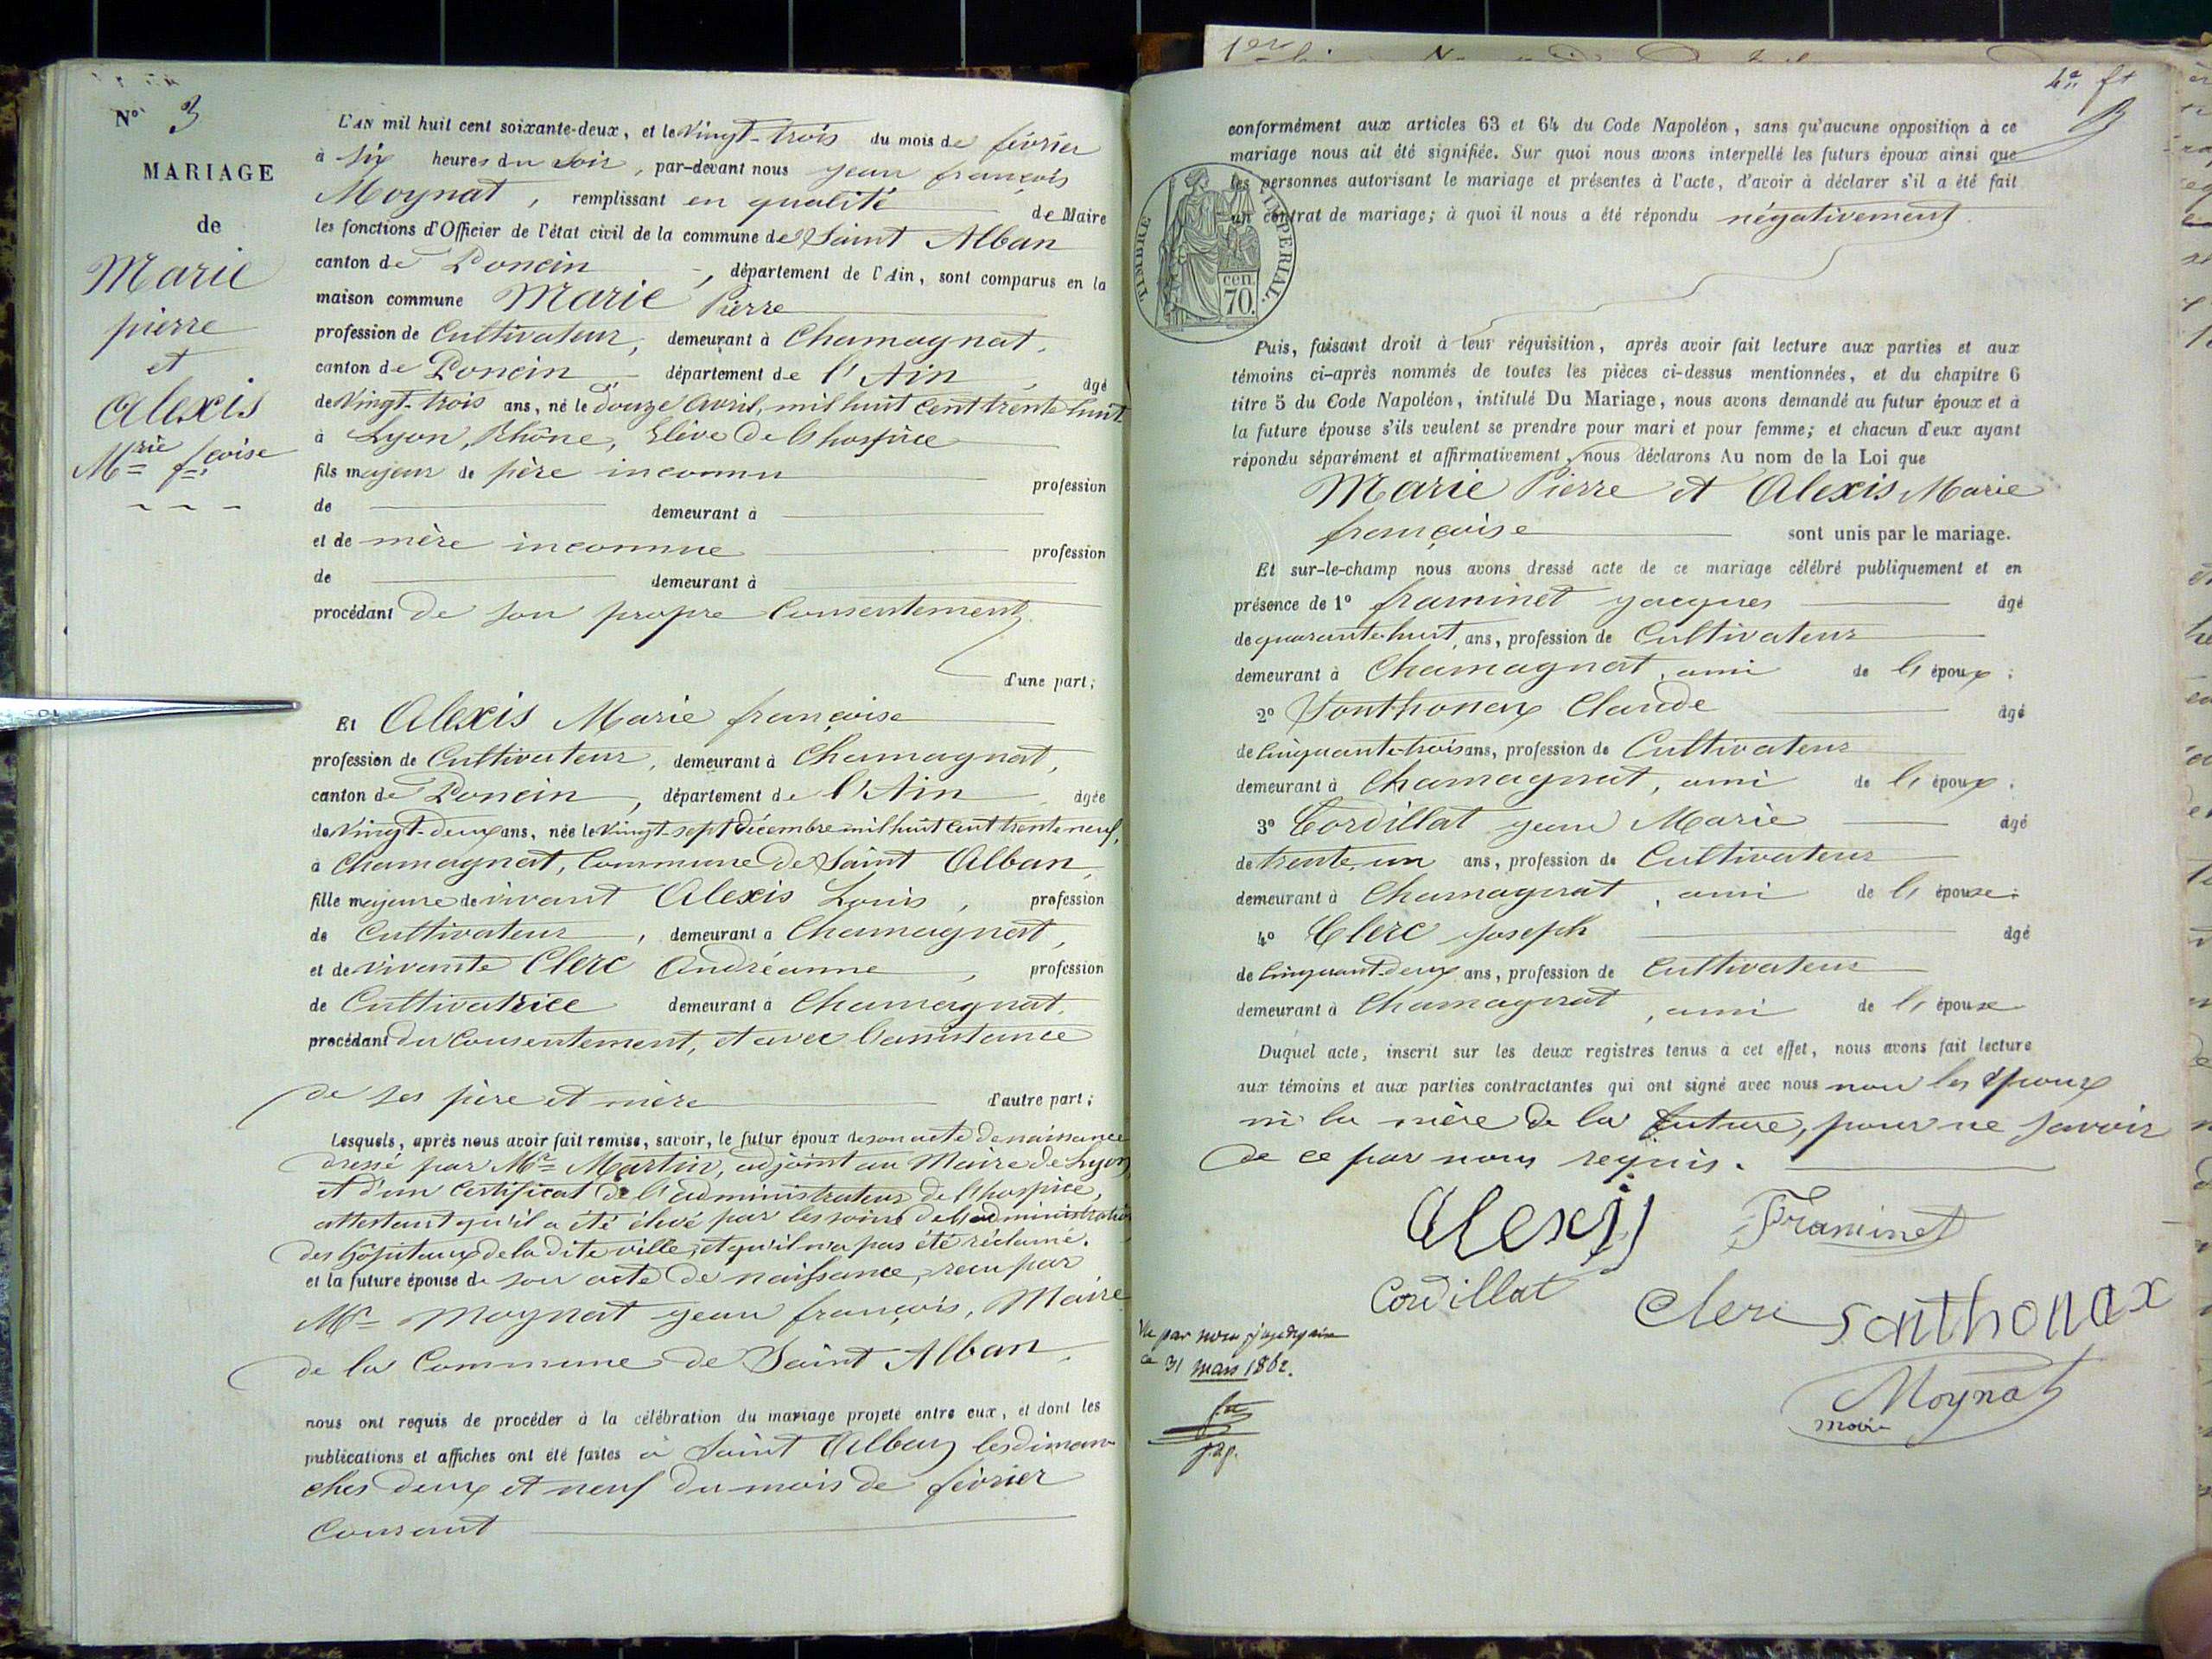 N° 3
MARIAGE
de
Marie
pierre
et
Alexis
Mrie fçoise
L'AN mil huit cent soixante-deux, et le vingt-trois du mois de février
à six heures du soir, par-devant nous jean françois
Moynat, remplissant en qualité de Maire
les fonctions d'Officier de l'état civil de la commune de Saint Alban
canton de Poncin, département de l'Ain, sont comparus en la
maison commune Marie Pierre
profession de Cultivateur, demeurant à Chamagnat,
canton de Poncin département de l'Ain, âgé
de vingt-trois ans, né le douze Avril, mil huit cent trente huit
à Lyon, Rhône, Elève de l'hospice
fils majeur de père inconnu profession
de demeurant à
et de mère inconnue profession
de demeurant à
procédant de son propre Consentement
d'une part;
Et Alexis Marie françoise
profession de Cultivateur, demeurant à Chamagnat,
canton de Poncin, département de l'Ain âgée
de vingt-deux ans, née le vingt-sept décembre mil huit cent trente neuf,
à Chamagnat, Commune de Saint Alban,
fille majeure de vivant Alexis Louis, profession
de Cultivateur, demeurant à Chamagnat,
et de vivante Clerc Andréanne, profession
de Cultivatrice demeurant à Chamagnat,
procédant du Consentement, et avec l'assistance
de ses père et mère d'autre part;
Lesquels, après nous avoir fait remise, savoir, le futur époux de son acte de naissance
dressé par Mr Martin, adjoint au Maire de Lyon
et d'un Certificat de l'administrateur de l'hospice,
attestant qu'il a été élevé par les soins de l'administration
des hôpitaux de la dite ville, et qu'il n'a pas été réclamé.
et la future épouse de son acte de naissance, reçu par
Mr Moynat jean françois, Maire
de la Commune de Saint Alban,
nous ont requis de procéder à la célébration du mariage projeté entre eux, et dont les
publications et affiches ont été faites à Saint Alban les diman-
ches deux et neuf du mois de février
Courant
conformément aux articles 63 et 64 du Code Napoléon, sans qu'aucune opposition à ce
mariage nous ait été signifiée. Sur quoi nous avons interpellé les futurs époux ainsi que
les personnes autorisant le mariage et présentes à l'acte, d'avoir à déclarer s'il a été fait
un contrat de mariage; à quoi il nous a été répondu négativement.
TIMBRE IMPERIAL.
cen.
70.
Puis, faisant droit à leur réquisition, après avoir fait lecture aux parties et aux
témoins ci-après nommés de toutes les pièces ci-dessus mentionnées, et du chapitre 6
titre 5 du Code Napoléon, intitulé Du Mariage, nous avons demandé au futur époux et à
la future épouse s'ils veulent se prendre pour mari et pour femme; et chacun d'eux ayant
répondu séparément et affirmativement, nous déclarons Au nom de la Loi que
Marie Pierre et Alexis Marie
françoise sont unis par le mariage.
Et sur-le-champ nous avons dressé acte de ce mariage célébré publiquement et en
présence de 1° framinet jacques âgé
de quarante-huit ans, profession de Cultivateur
demeurant à Chamagnat, ami de l'époux;
2° Sonthonax Claude âgé
de Cinquante-trois ans, profession de Cultivateur
demeurant à Chamagnat, ami de l'époux.
3° Cordillat jean Marie âgé
de trente-un ans, profession de Cultivateur
demeurant à Chamagnat, ami de l'épouse.
4° Clerc joseph âgé
de Cinquant-deux ans, profession de Cultivateur
demeurant à Chamagnat, ami de l'épouse
Duquel acte, inscrit sur les deux registres tenus à cet effet, nous avons fait lecture
aux témoins et aux parties contractantes qui ont signé avec nous non les époux
ni la mère de la future, pour ne savoir
de ce par nous requis.
Alexis Framinet
Cordillat Clerc Sonthonax
Vu par nous juge de paix
ce 31 mars 1862.
Moynat
maire